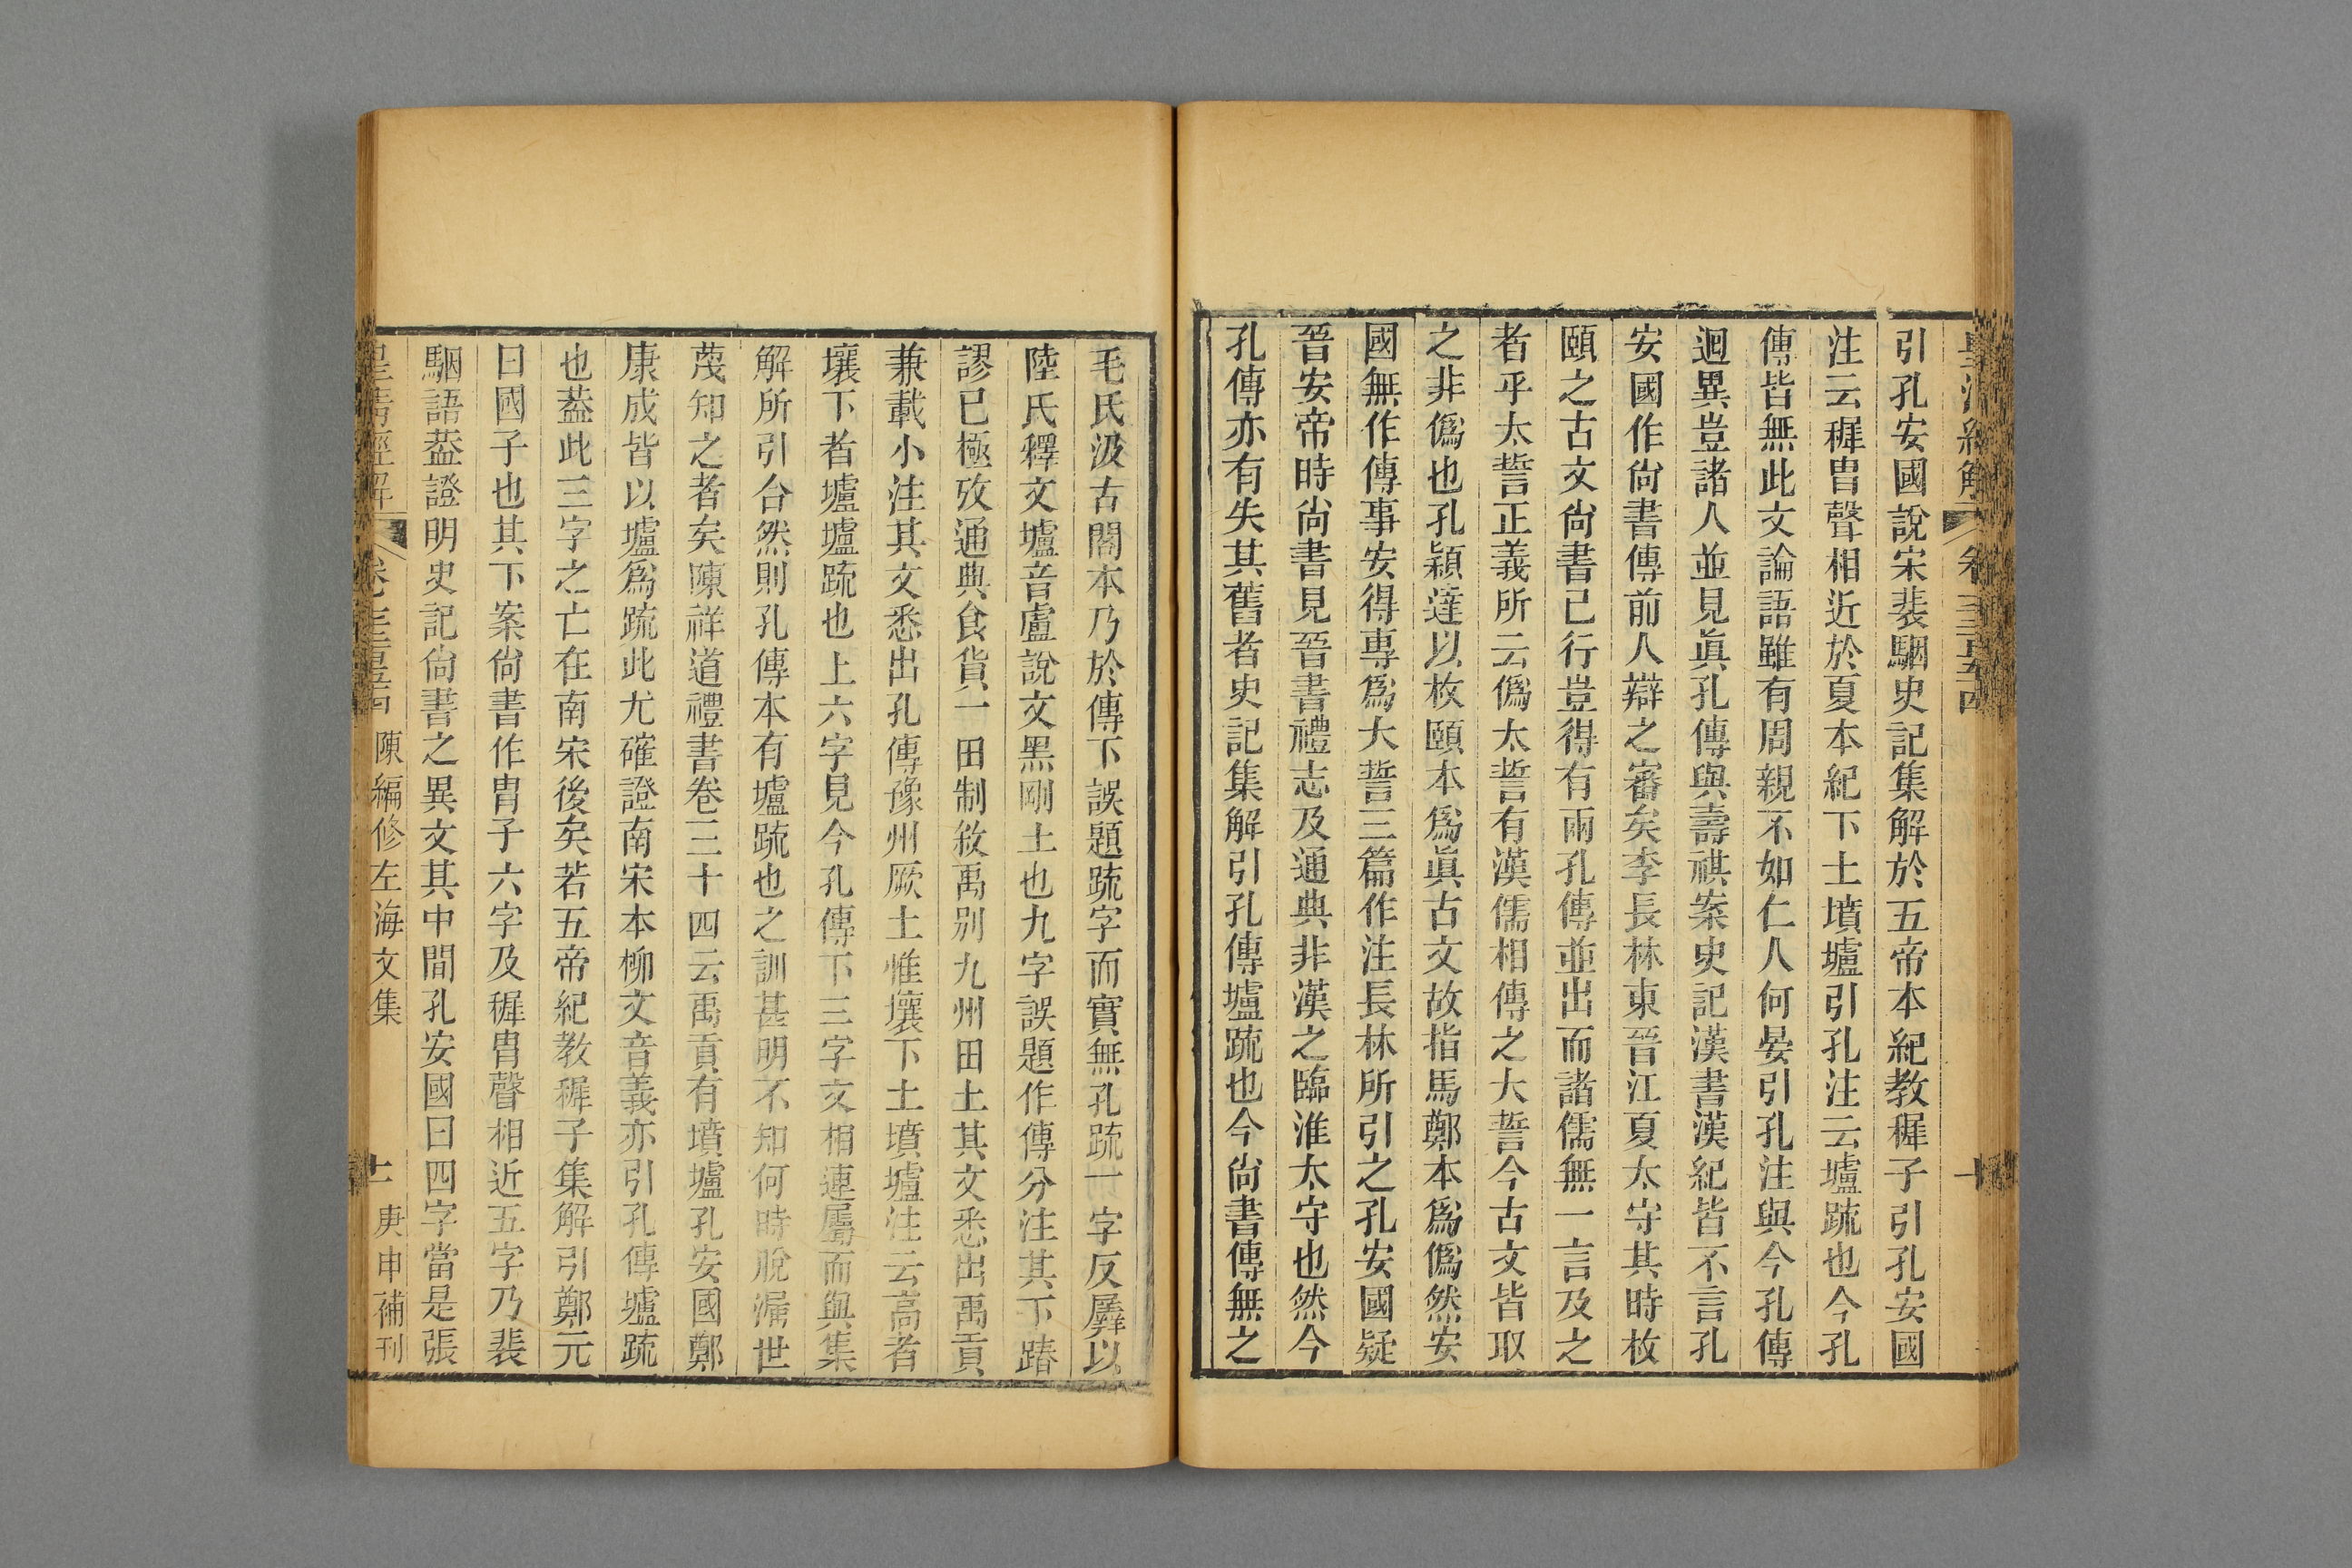 皇清經解 卷一千二百五十四 十
引孔安國說宋裴駰史記集解於五帝本紀教穉子引孔安國
注云穉冑聲相近於夏本紀下土墳壚引孔注云壚疏也今孔
傳皆無此文論語雖有周親不如仁人何晏引孔注與今孔傳
迥異豈諸人並見眞孔傳與壽祺案史記漢書漢紀皆不言孔
安國作尙書傳前人辯之審矣李長林東晉江夏太守其時枚
頤之古文尙書已行豈得有兩孔傳並出而諸儒無一言及之
者乎太誓正義所云僞太誓有漢儒相傳之大誓今古文皆取
之非僞也孔穎達以枚頤本爲眞古文故指馬鄭本爲僞然安
國無作傳事安得專爲大誓三篇作注長林所引之孔安國疑
晉安帝時尙書見晉書禮志及通典非漢之臨淮太守也然今
孔傳亦有失其舊者史記集解引孔傳壚疏也今尙書傳無之
毛氏汲古閣本乃於傳下誤題疏字而實無孔疏一字反羼以
陸氏釋文壚音盧說文黑剛土也九字誤題作傳分注其下踳
謬已極攷通典食貨一田制敘禹別九州田土其文悉出禹貢
兼載小注其文悉出孔傳豫州厥土惟壤下土墳壚注云高者
壤下者壚壚疏也上六字見今孔傳下三字文相連屬而與集
解所引合然則孔傳本有壚疏也之訓甚明不知何時脫漏世
蔑知之者矣陳祥道禮書卷三十四云禹貢有墳壚孔安國鄭
康成皆以壚爲疏此尤確證南宋本柳文音義亦引孔傳壚疏
也葢此三字之亡在南宋後矣若五帝紀教穉子集解引鄭元
曰國子也其下案尙書作冑子六字及穉冑聲相近五字乃裴
駰語葢證明史記尙書之異文其中間孔安國曰四字當是張
皇清經解 卷一千二百五十四 陳編修左海文集 十一 庚申補刊